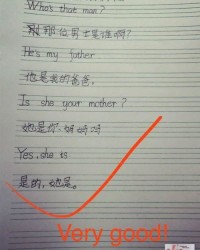 Who's that man?
那位男士是谁啊?
He's my father
他是我的爸爸。
Is she your mother?
她是你妈妈吗
Yes.she is
是的,她是。
Very good!